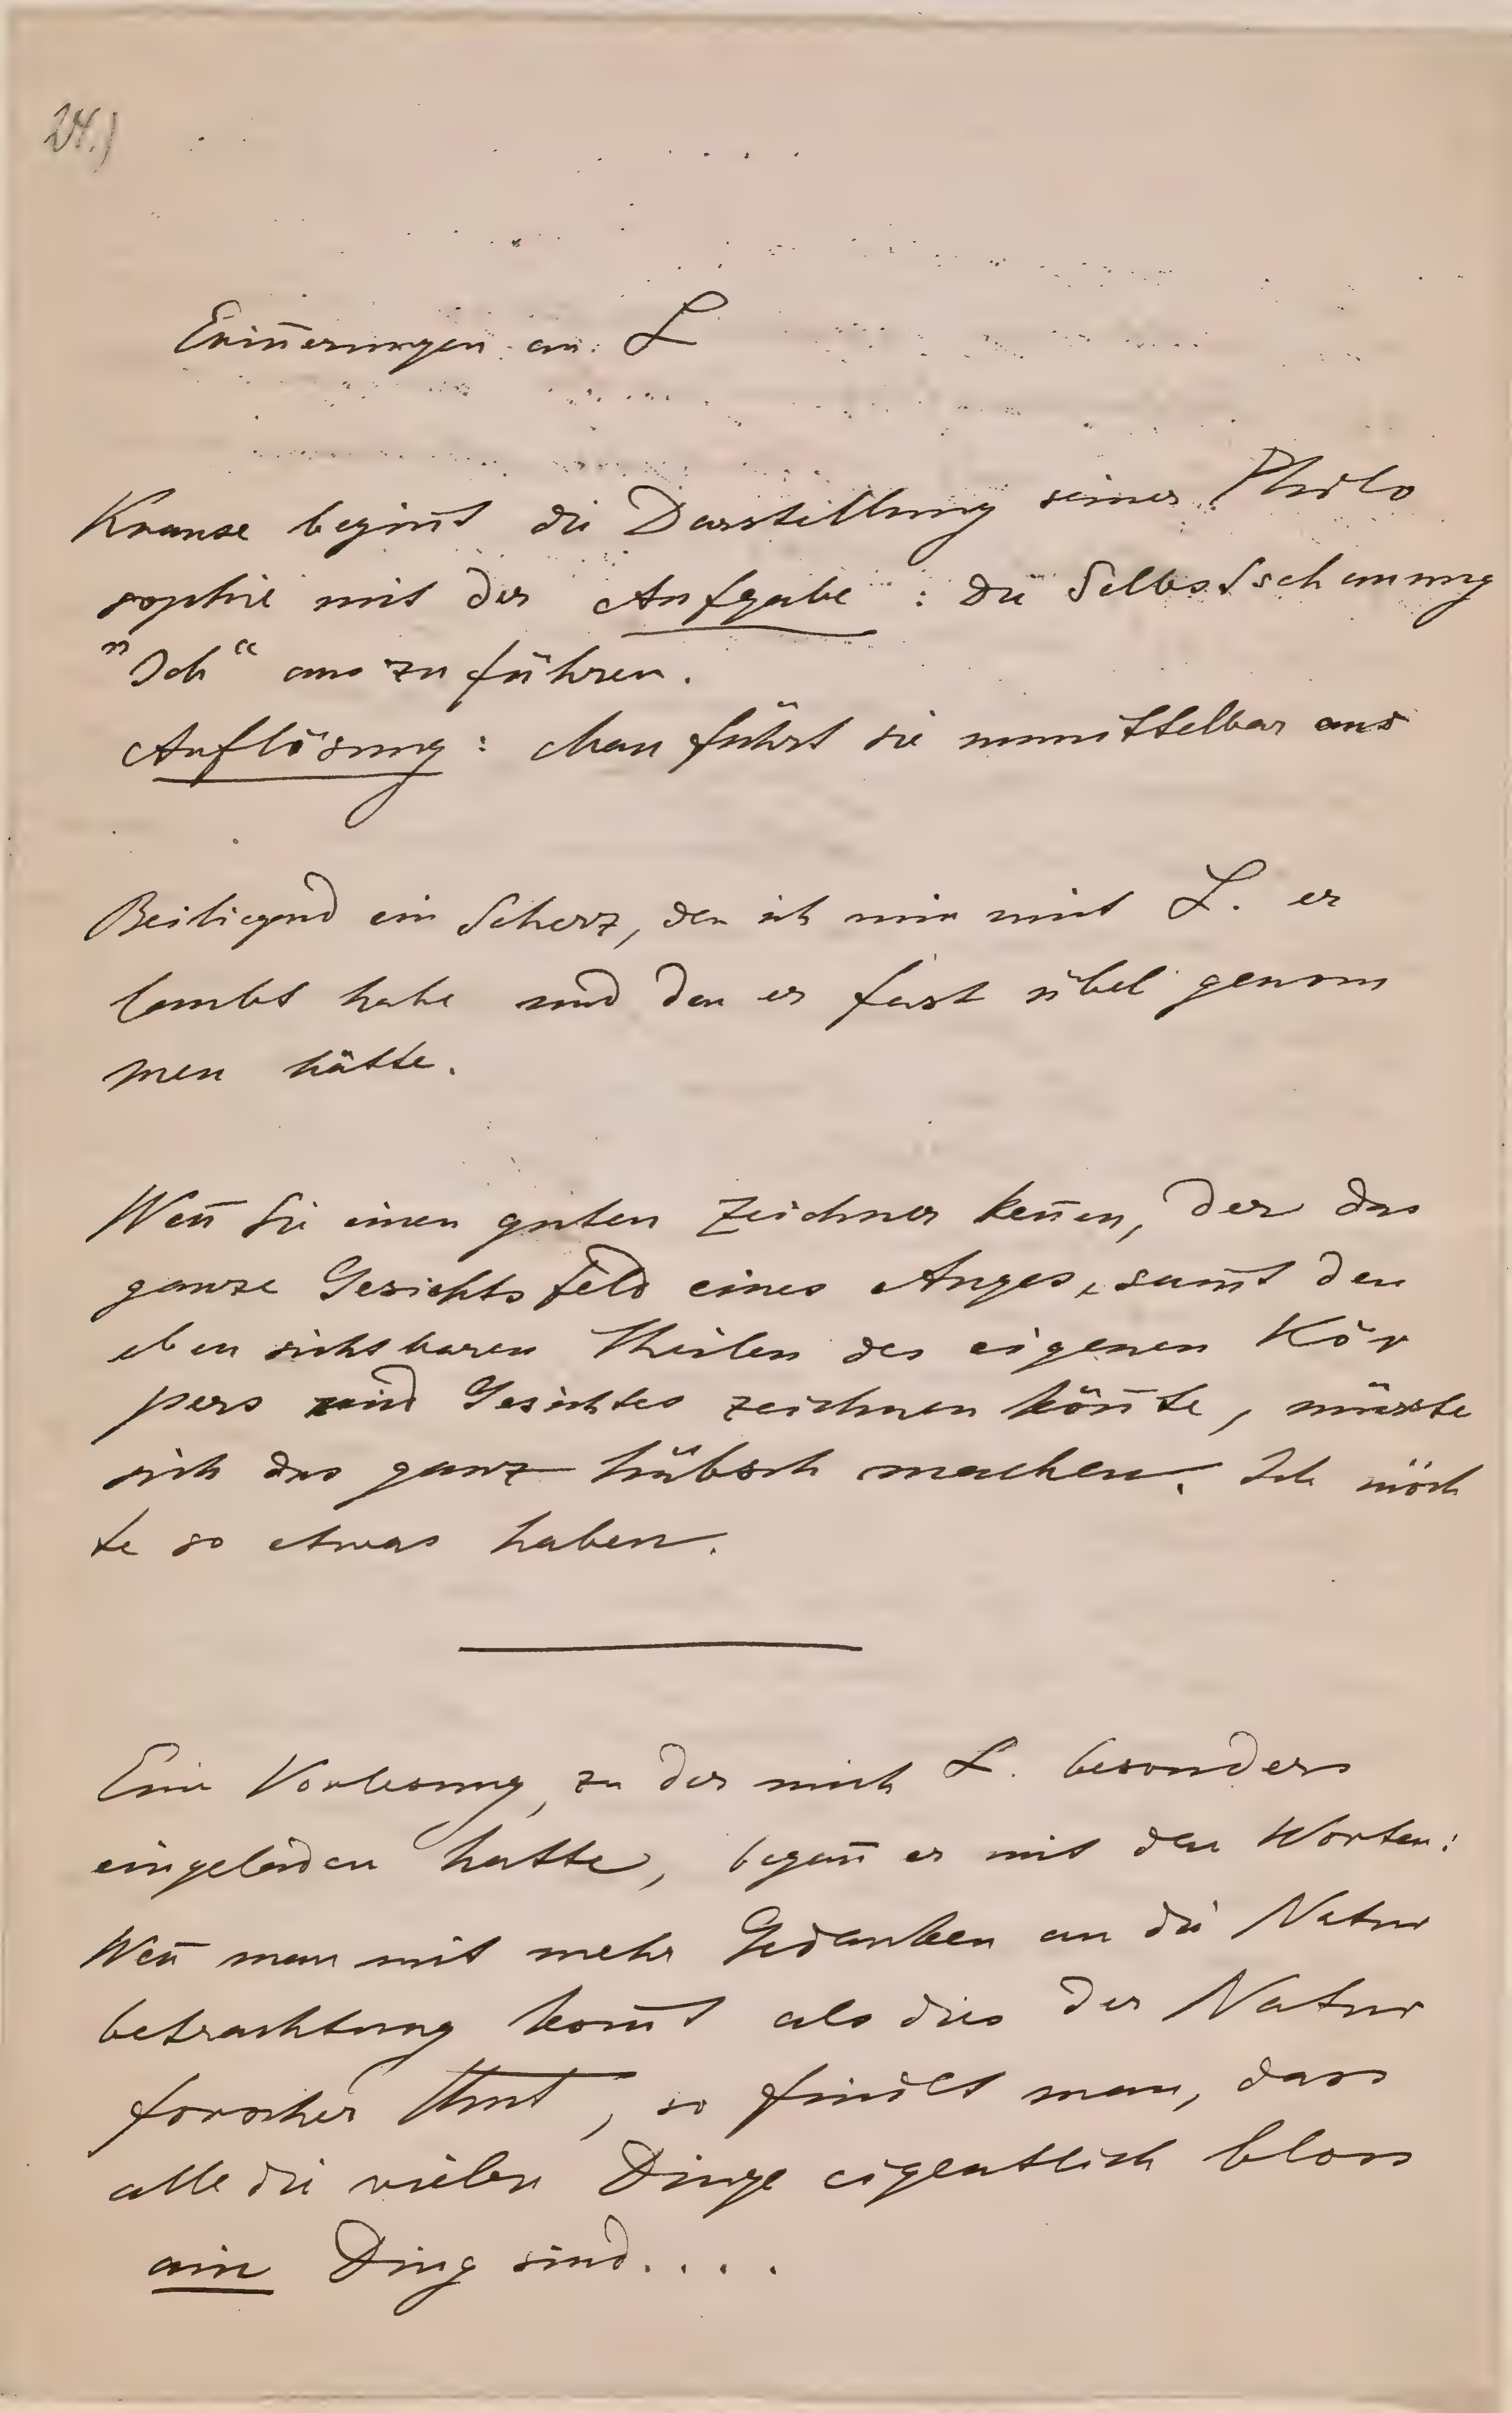 24.)
Eriñerungen an L
Krause begiñt die Darstellung seiner Philo
sophie mit der Aufgabe : Die Selbstschauung
"Ich" aus zu führen.
Auflösung : Man führt sie unmittelbar aus
Beiliegend ein Scherz, den ich mir mit L. er
laubt habe und den er fast übel genom
men hätte.
Weñ Sie einen guten Zeichner keñen, der das
ganze Gesichtsfeld eines Auges, sam̄t den
eben sichtbaren Theilen des eigenen Kör
pers und Gesichtes zeichnen köñte, müsste
sich das ganz hübsch machen. Ich möch
te so etwas haben.
Eine Vorlesung, zu der mich L. besonders
eingeladen hatte, begañ er mit den Worten:
Weñ man mit mehr Gedanken an die Natur
betrachtung kom̄t als dies der Natur
forscher thut, so findet man, dass
alle die vielen Dinge eigentlich bloss
ein Ding sind....